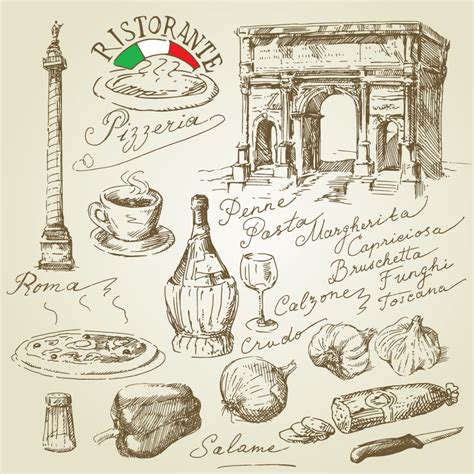 RISTORANTE
Pizzeria
Penne
Pasta
Margherita
Capriciosa
Bruschetta
Funghi
Toscana
Calzone
Crudo
Roma
Salame